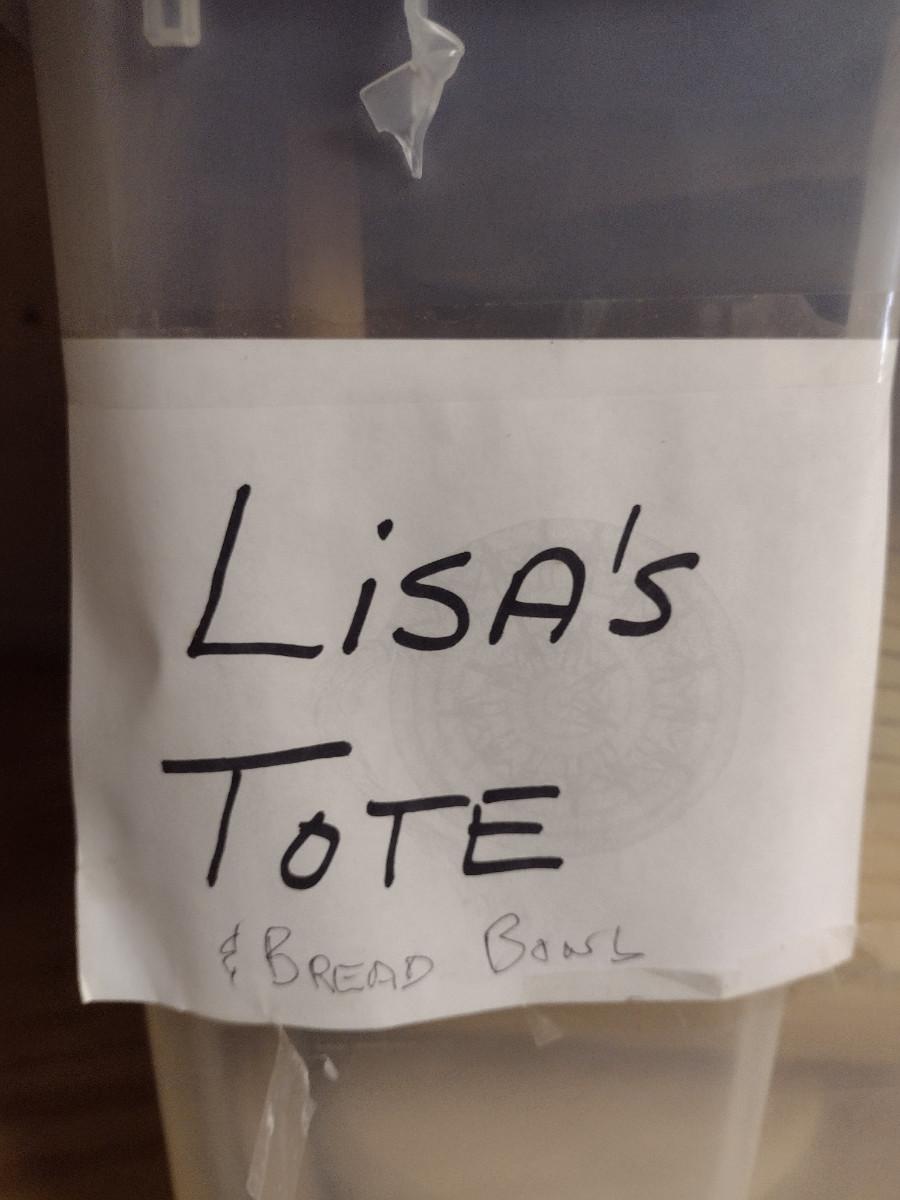 LiSA'S
TOTE
& BREAD BOWL